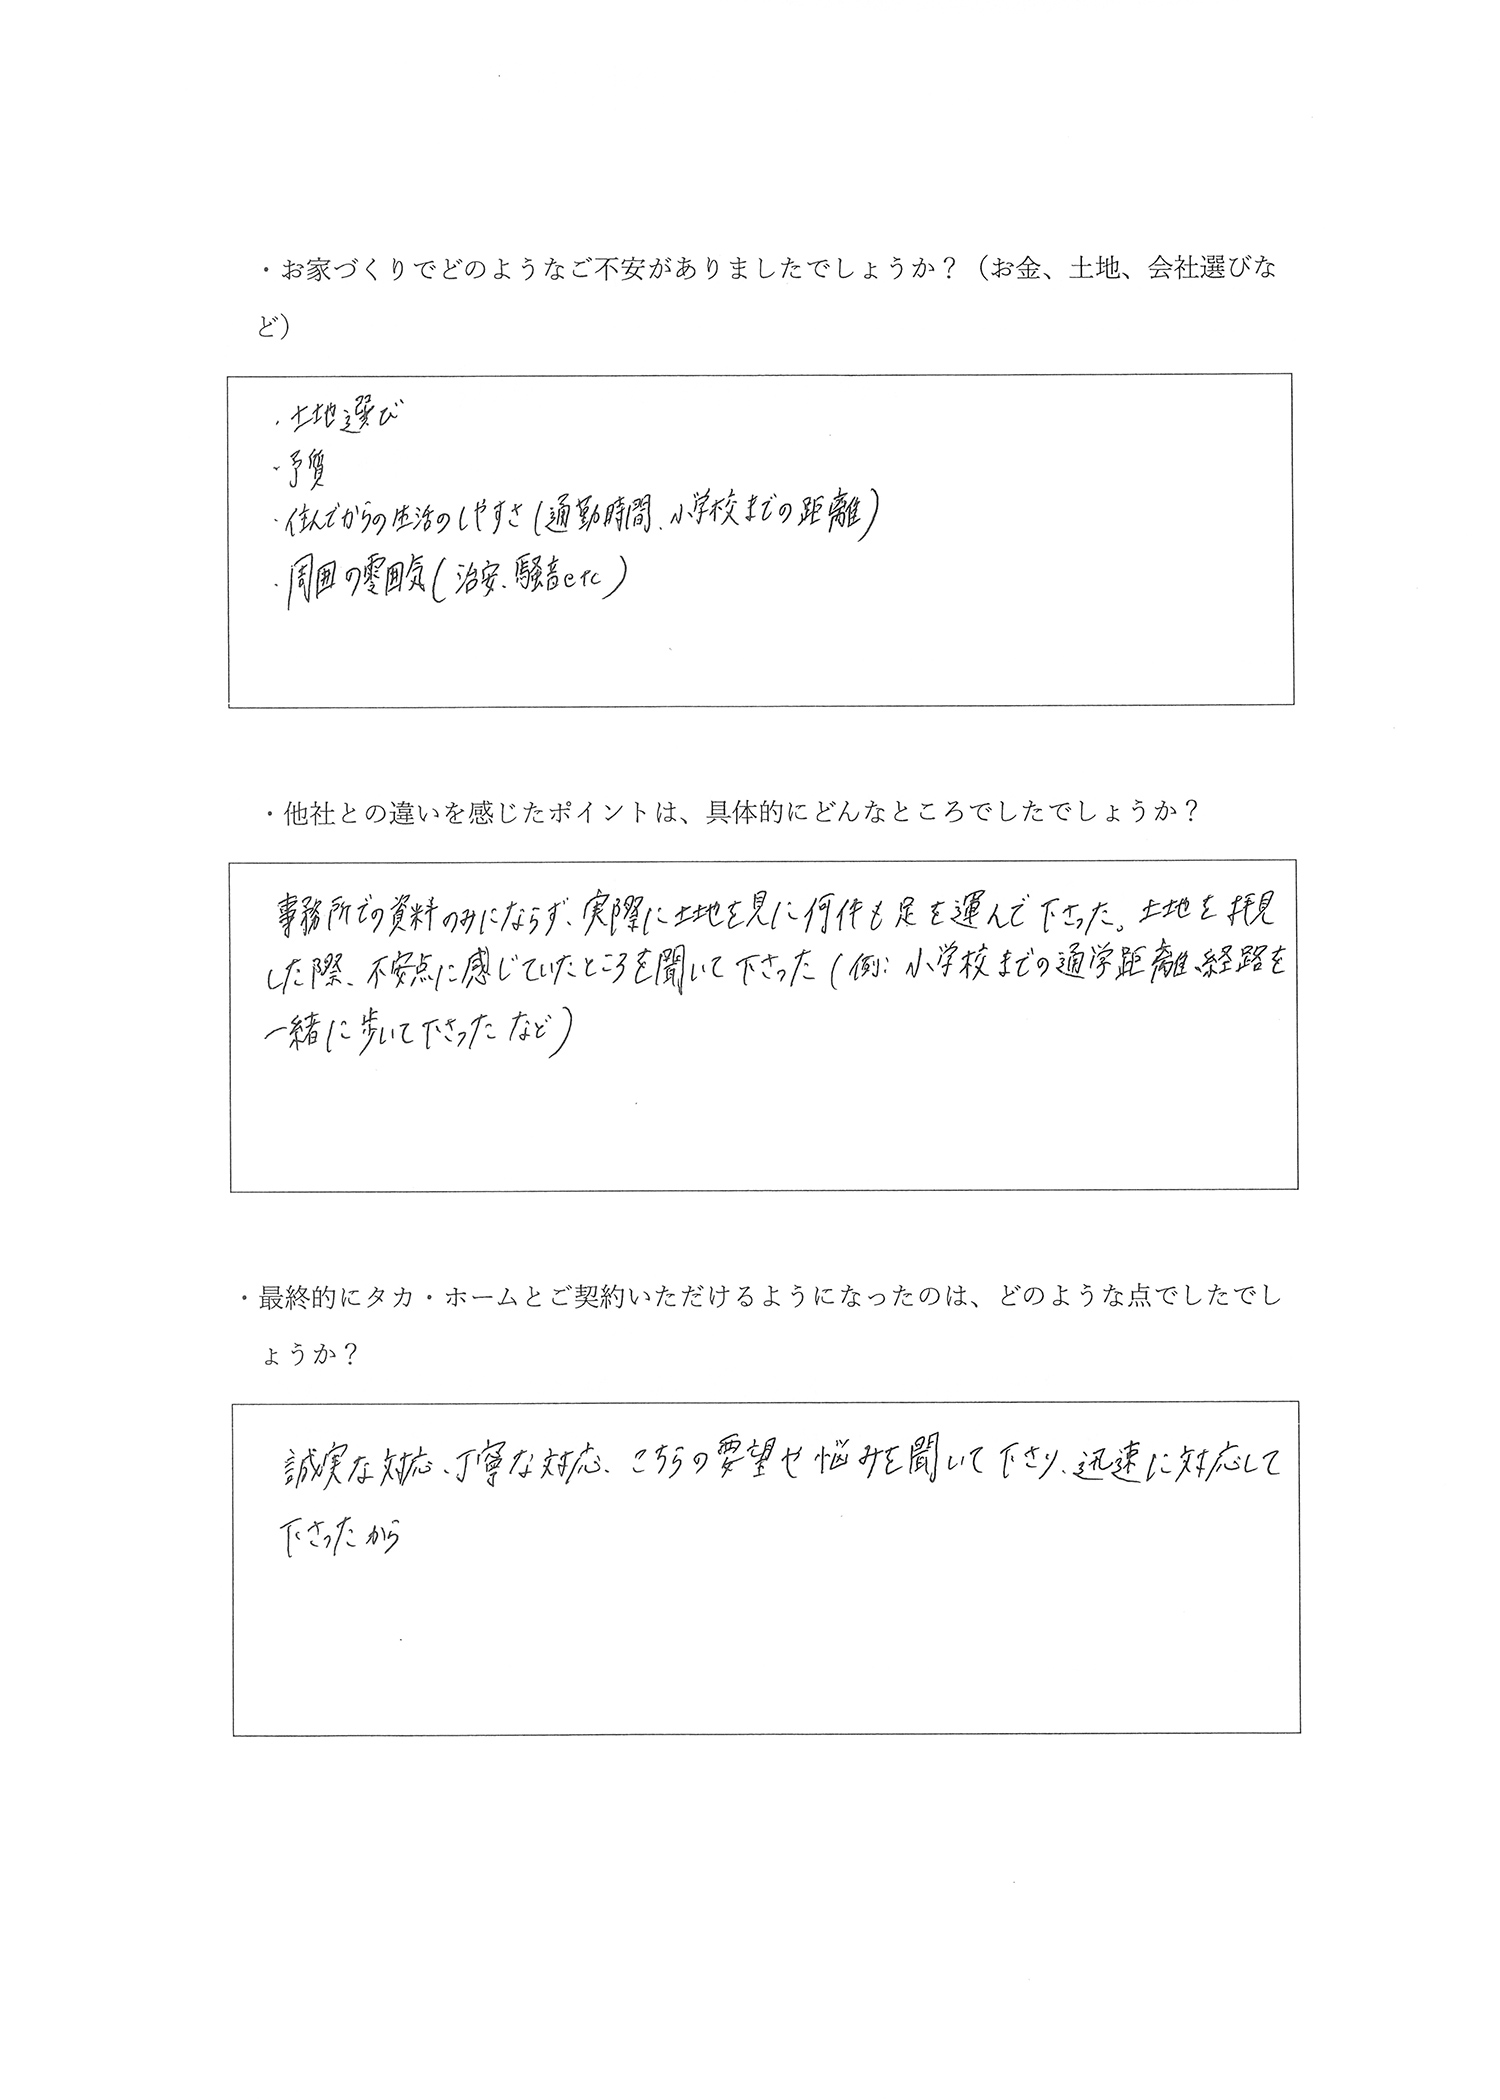 ・お家づくりでどのようなご不安がありましたでしょうか？（お金、土地、会社選びな
ど）
・土地選び
・予質
・住んでからの生活のしやすさ(通勤時間、小学校までの距離)
・周囲の雰囲気(治安、騒音etc)
・他社との違いを感じたポイントは、具体的にどんなところでしたでしょうか？
事務所での資料のみにならず、実際に土地を見に何件も足を運んで下さった。土地を拝見
した際、不安点に感じていたところを聞いて下さった(例：小学校までの通学距離、経路を
一緒に歩いて下さったなど)
・最終的にタカ・ホームとご契約いただけるようになったのは、どのような点でしたでし
ょうか？
誠実な対応、丁寧な対応、こちらの要望や悩みを聞いて下さり、迅速に対応して
下さったから